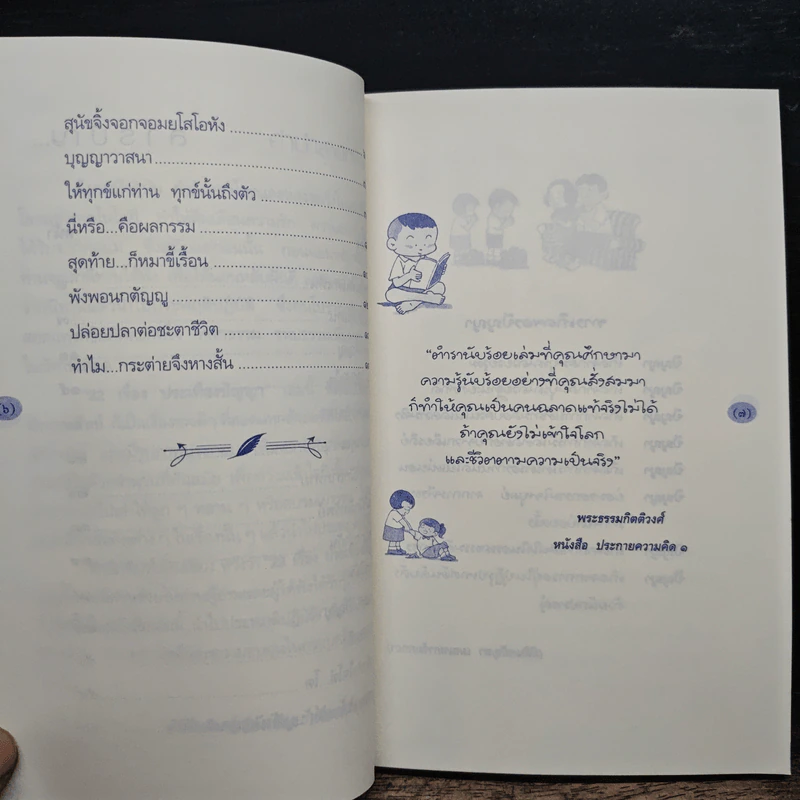 สุนัขจิ้งจอกจอมยโสโอหัง
บุญญาวาสนา
ให้ทุกข์แก่ท่าน ทุกข์นั้นถึงตัว
นี่หรือ...คือผลกรรม
สุดท้าย...ก็หมาขี้เรื้อน
พังพอนกตัญญู
ปล่อยปลาต่อชะตาชีวิต
ทำไม...กระต่ายจึงหางสั้น
"ตำรานับร้อยเล่มที่คุณศึกษามา
ความรู้นับร้อยอย่างที่คุณสั่งสมมา
ก็ทำให้คุณเป็นคนฉลาดแท้จริงไม่ได้
ถ้าคุณยังไม่เข้าใจโลก
และชีวิตตามความเป็นจริง"
พระธรรมกิตติวงศ์
หนังสือ ประกายความคิด ๑
(๗)